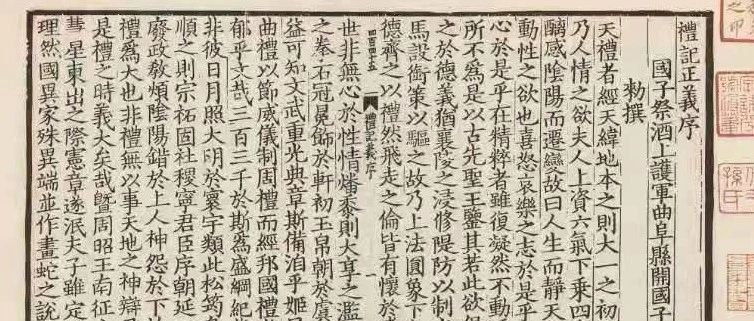 禮記正義序
國子祭酒上護軍曲阜縣開國子
勑撰
夫禮者經天緯地本之則大一之初
乃人情之欲夫人上資六氣下乘四
醨感陰陽而遷變故曰人生而靜天
動性之欲也喜怒哀樂之志於是乎
心於是乎在精粹者雖復凝然不動
所不為是以古先聖王鑒其若此欲保
之於德義猶襄陵之浸修隄防以制
馬設銜策以驅之故乃上法圓象下
德齊之以禮然飛走之倫皆有懷於
四百四十五 禮記義序 一
世非無心於性情燔黍則大享之濫
之拳石冠冕飾於軒初玉帛朝於虞
益可知文武重光典章斯備洎乎姬
曲禮以節威儀制周禮而經邦國禮
郁乎文哉三百三千於斯為盛綱紀
非彼日月照大明於寰宇類此松筠
順之則宗祏固社稷寧君臣序朝廷
廢政教煩陰陽錯於上人神怨於下
禮為大也非禮無以事天地之神辯
是禮之時義大矣哉暨周昭王南征
彗星東出之際憲章遂泯夫子雖定
理然國異家殊異端並作畫蛇之說
之印